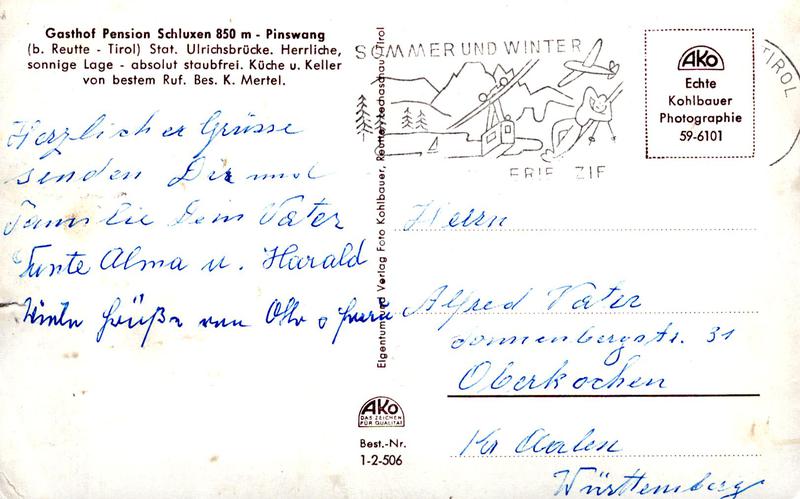 Gasthof Pension Schluxen 850 m - Pinswang
(b. Reutte - Tirol) Stat. Ulrichsbrücke. Herrliche,
sonnige Lage - absolut staubfrei. Küche u. Keller
von bestem Ruf. Bes. K. Mertel.
Herzlicher Grüsse
senden Dir und
Familie Dein Vater
Tante Alma u. Harald
Viele Grüße von Otto
Eigentum und Verlag Foto Kohlbauer, Reutte, Tirol
SOMMER UND WINTER
TIROL
AKO
Echte
Kohlbauer
Photographie
59-6101
Herrn
Alfred Vater
Sonnenbergstr. 31
Oberkochen
Kr Aalen
Württemberg
AKO
DAS ZEICHEN
FÜR QUALITÄT
Best.-Nr.
1-2-506